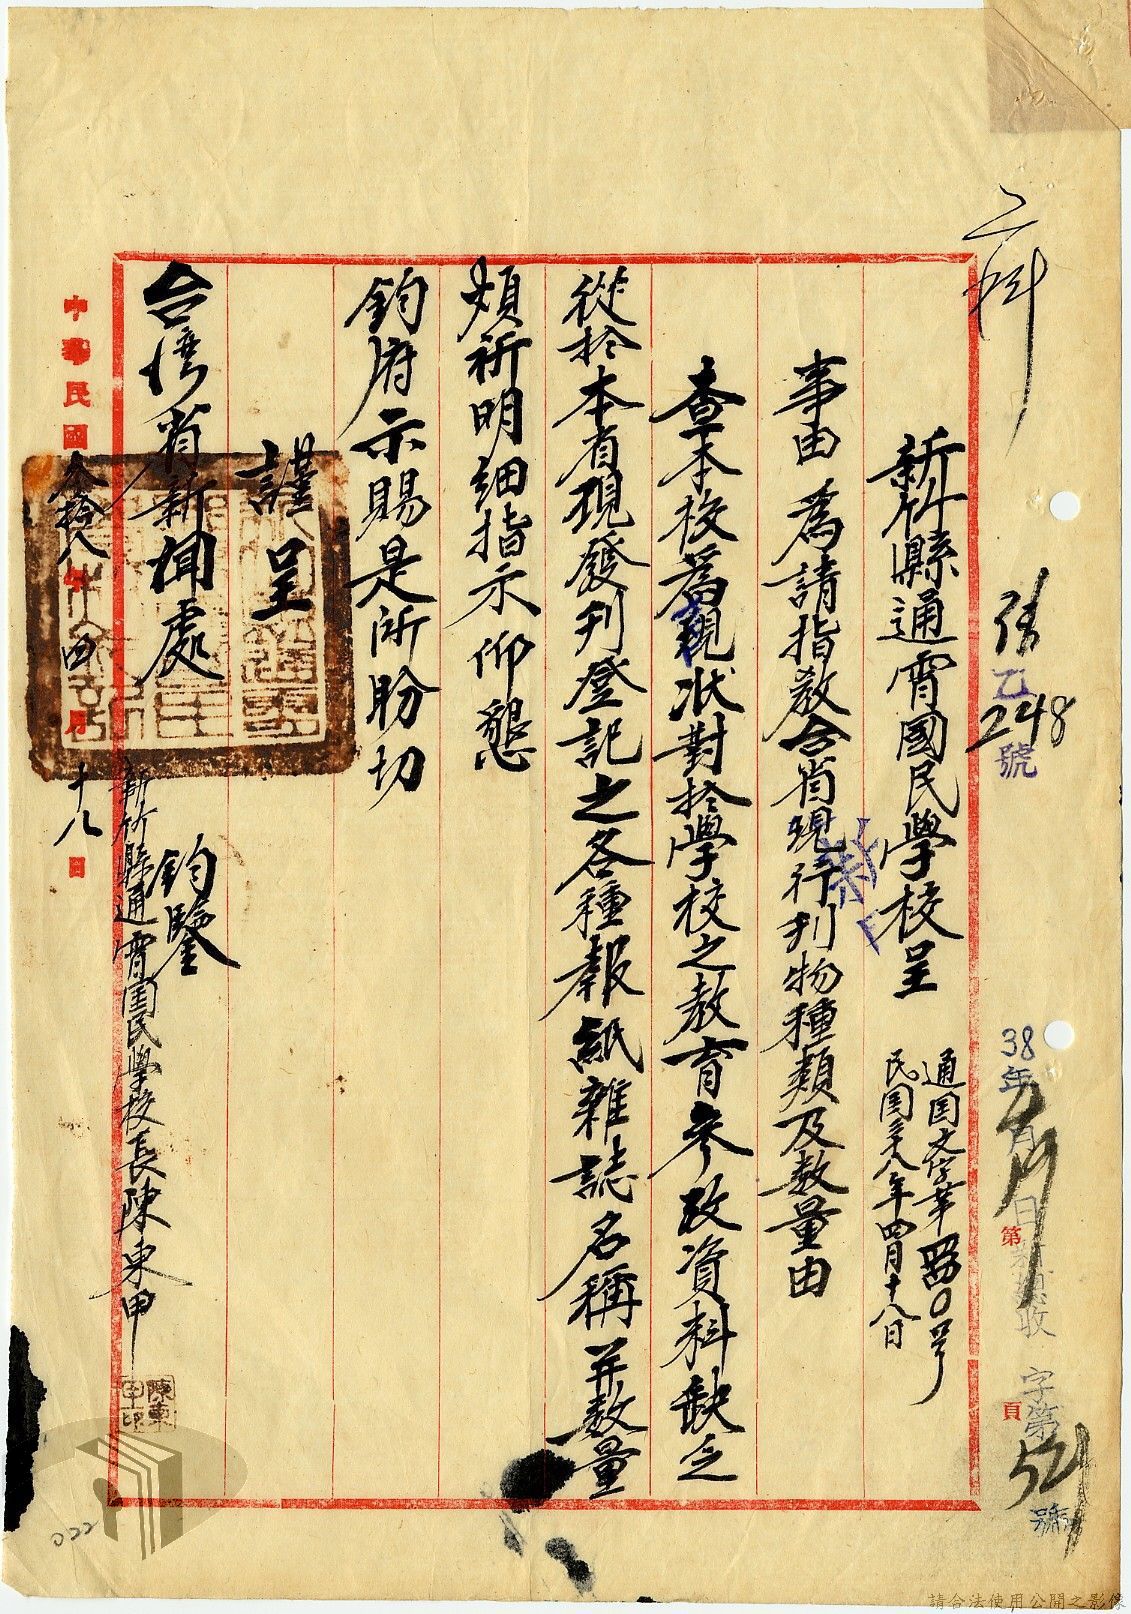 二科
張
乙
248
號
38年
月
日新總收
字第
521
號
第
頁
新竹縣通霄國民學校呈
通国文字第四四〇号
民国三十八年四月十八日
事由 為請指教合省現行刊物種類及数量由
查本校為現状對於學校之教育參改資料缺乏
從於本省現發刊登記之各種報紙雜誌名稱并数量
煩祈明细指示仰懇
鈞府示賜是所盼切
謹呈
台湾省新聞處
鈞鑒
新竹縣通霄国民學校長陳東甲
陳東甲印
中華民國叁拾八年四月十八日
022
請合法使用公開之影像